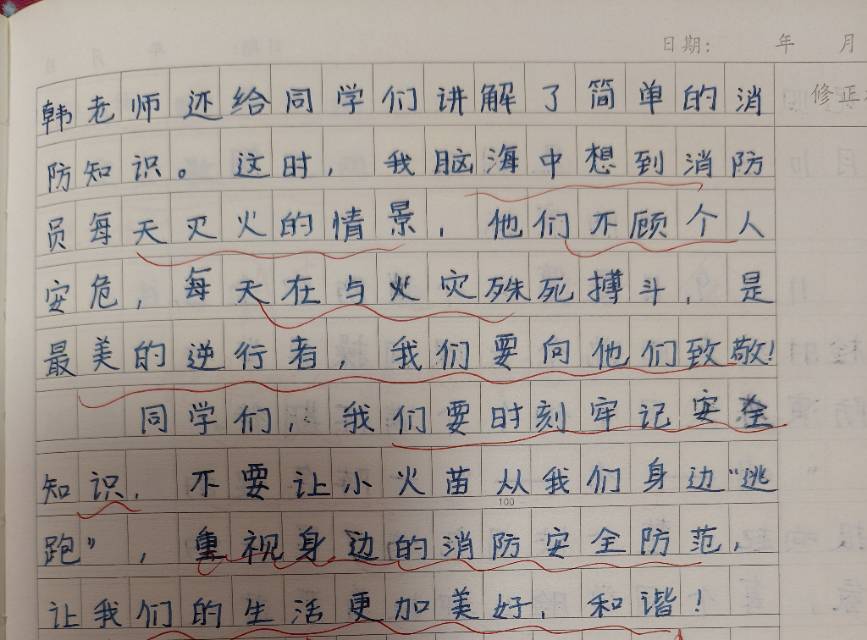 日期： 年 月
韩老师还给同学们讲解了简单的消
修正
防知识。这时，我脑海中想到消防
员每天灭火的情景，他们不顾个人
安危，每天在与火灾殊死搏斗，是
最美的逆行者，我们要向他们致敬！
同学们，我们要时刻牢记安全
知识，不要让小火苗从我们身边“逃
100
跑”，重视身边的消防安全防范，
让我们的生活更加美好，和谐！